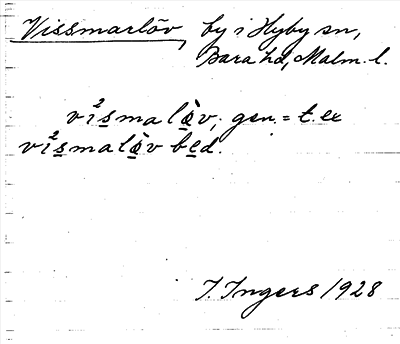 Vissmarlöv, by i Hyby sn,
Bara hd, Malm. l.
vi²s̲malà̲v, gen. = t. ex
vi²s̲malà̲v be̲d.
I. Ingers 1928